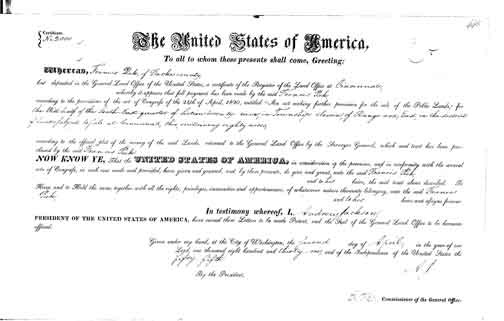 Certificate
No. 5000
The United States of America,
To all to whom these presents shall come, Greeting:
Whereas, Francis
has deposited in the General Land Office of the United States, a certificate of the Register of the Land Office at Cincinnati,
whereby it appears that full payment has been made by the said Francis
according to the provision of the act of Congress of the 24th of April, 1820, entitled "An act making further provision for the sale of the Public Lands," for
the West half of the South East quarter of Section twenty in Township eleven of Range one East, in the district
of Lands at Cincinnati, containing eighty acres,
according to the official plat of the survey of the said Lands, returned to the General Land Office by the Surveyor General, which said tract has been pur-
chased by the said Francis
NOW KNOW YE, That the UNITED STATES OF AMERICA, in consideration of the premises, and in conformity with the several
acts of Congress, in such case made and provided, have given and granted, and by these presents, do give and grant, unto the said Francis
and to his heirs, the said tract above described: To
Have and to Hold the same, together with all the rights, privileges, immunities and appurtenances, of whatsoever nature thereunto belonging, unto the said Francis
and to his heirs and assigns forever.
In testimony whereof, I, Andrew Jackson
PRESIDENT OF THE UNITED STATES OF AMERICA, have caused these Letters to be made Patent, and the Seal of the General Land Office to be hereunto
affixed.
Given under my hand, at the City of Washington, the second day of April in the year of our
Lord one thousand eight hundred and thirty one and of the Independence of the United States the
fifty fifth
A. J.
By the President,
Commissioner of the General Office.